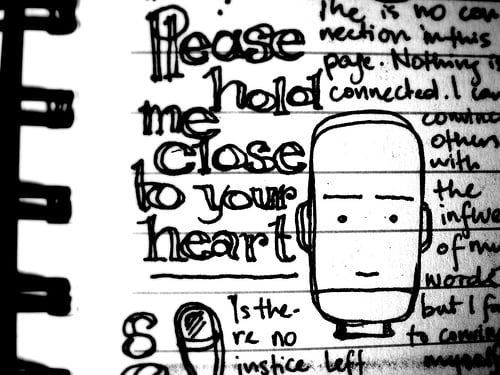 Please
hold
me
close
to your
heart
The is no con
nection in this
page. Nothing is
connected. I can
convince
others
with
the
influe
of my
words
but I f
to convin
myself
Is the-
re no
injstice left
S